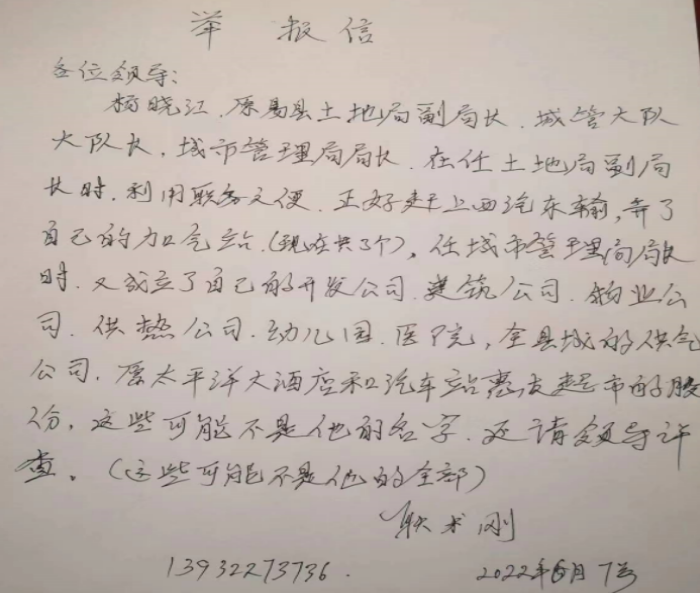 举报信
各位领导：
杨晓江，原易县土地局副局长，城管大队
大队长，城市管理局局长，在任土地局副局
长时，利用职务之便，正好赶上西汽东输，弄了
自己的加气站（现在共3个），任城市管理局局长
时，又成立了自己的开发公司，建筑公司，物业公
司，供热公司，幼儿园，医院，全县城的供气
公司，原太平洋大酒店和汽车站惠友超市的股
份，这些可能不是他的名字，还请领导详
查。（这些可能不是他的全部）
刚
13932273736.
2022年6月7号